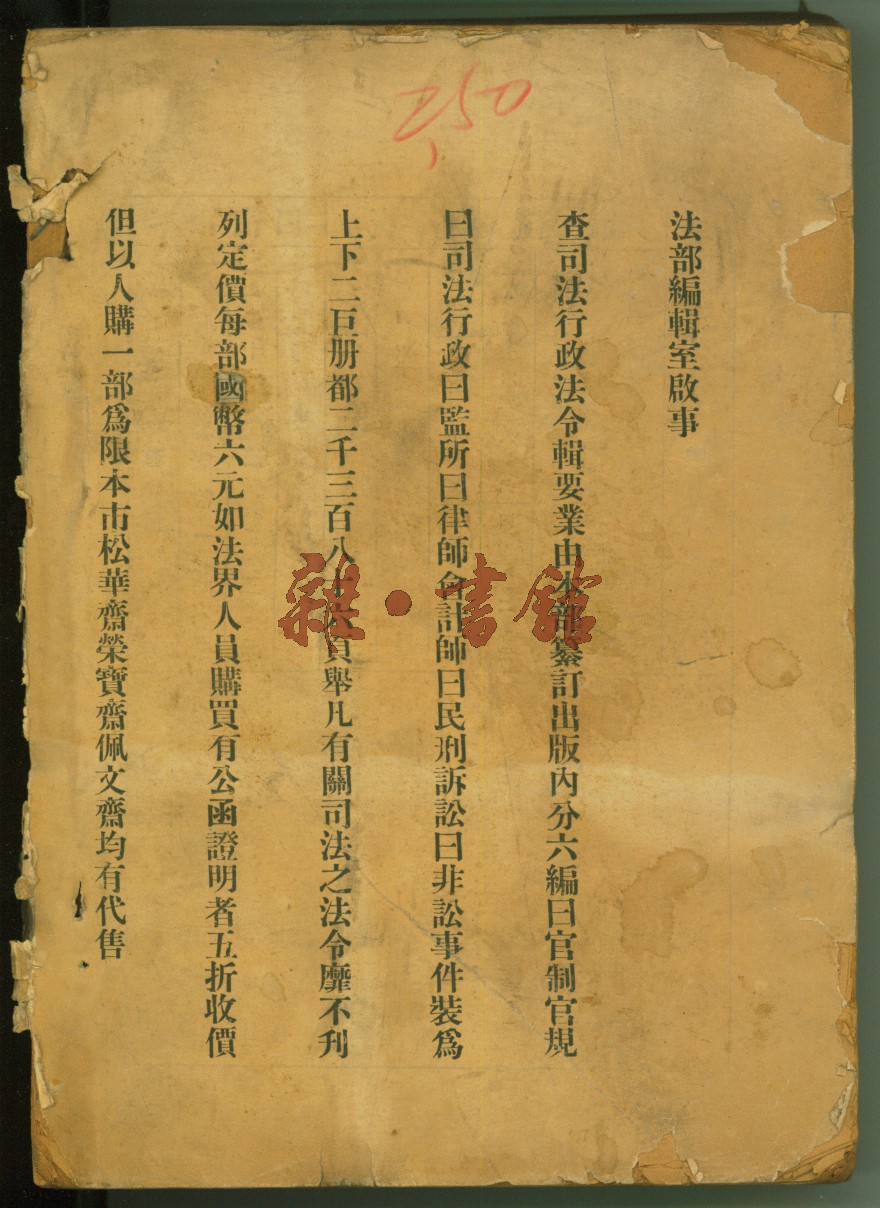 250
法部編輯室啟事
查司法行政法令輯要業由本部纂訂出版內分六編曰官制官規
曰司法行政曰監所曰律師會計師曰民刑訴訟曰非訟事件裝爲
上下二巨册都二千三百八十六頁舉凡有關司法之法令靡不刋
列定價每部國幣六元如法界人員購買有公函證明者五折收價
但以人購一部爲限本市松華齋榮寶齋佩文齋均有代售
雜·書館